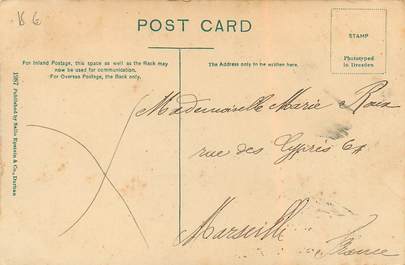 POST CARD
STAMP
Phototyped
in Dresden
For Inland Postage, this space as well as the Back may
now be used for communication.
For Oversea Postage, the Back only.
The Address only to be written here.
1957 Published by Sallo Epstein & Co., Durban
Mademoiselle Marie
rue des Cyprès
Marseille
France